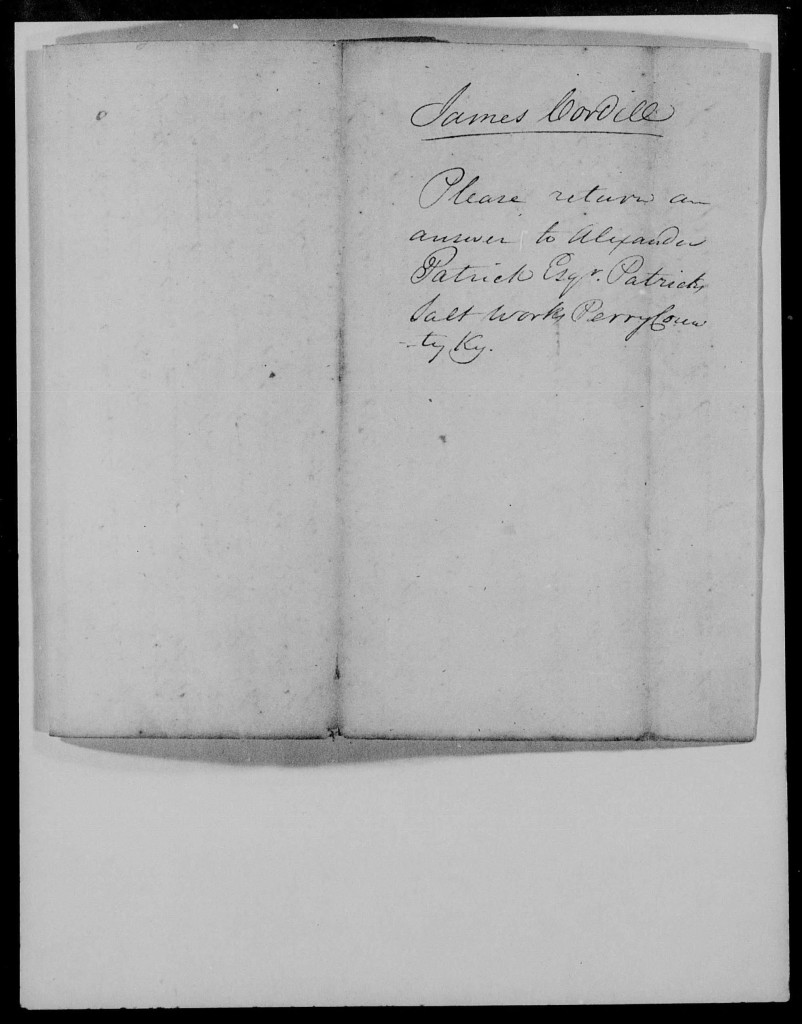 James Cordill
Please return an
answer to Alexander
Patrick Esqr. Patricks
Salt Works Perry Coun
-ty Ky.